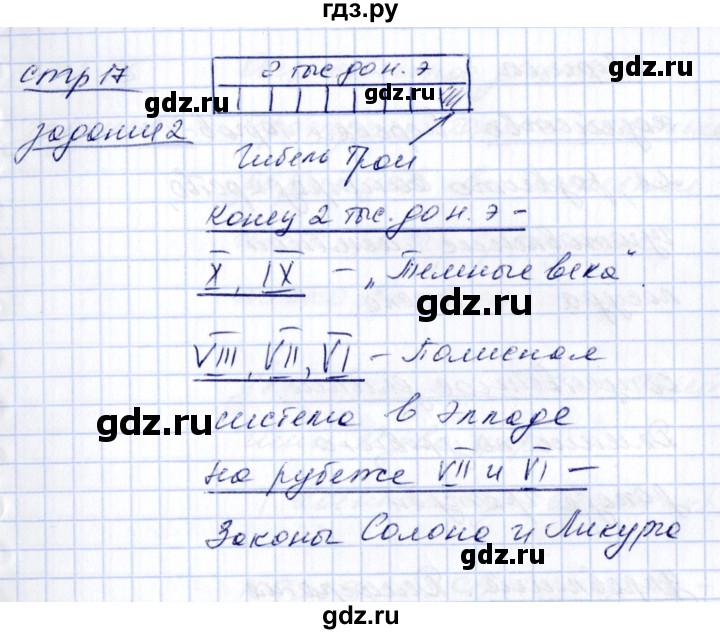 гдз.ру
стр 17
2 тыс до н. э
gdz.ru
gdz.ru
задание 2
Гибель Трои
Конец 2 тыс. до н. э –
X, IX – „Темные века"
gdz.ru
VIII, VII, VI – Полисная
gdz.ru
система в Элладе
на рубеже VII и VI –
Законы Солона и Ликурга
gdz.ru
gdz.ru